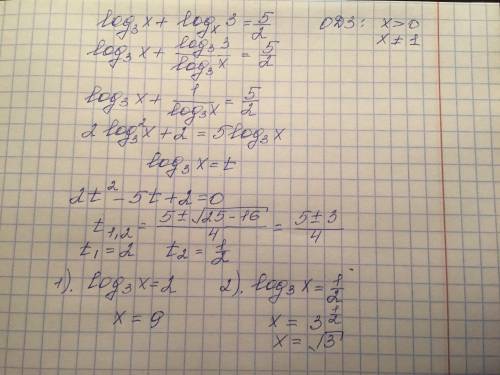 log₃x + logₓ3 = 5/2   ОДЗ: x>0
x≠1
log₃x + log₃3/log₃x = 5/2
log₃x + 1/log₃x = 5/2
2log₃²x + 2 = 5log₃x
log₃x = t
2t² - 5t + 2 = 0
t₁,₂ = (5±√(25-16))/4 = (5±3)/4
t₁ = 2   t₂ = 1/2
1). log₃x = 2   2). log₃x = 1/2
x = 9   x = 3^(1/2)
x = √3